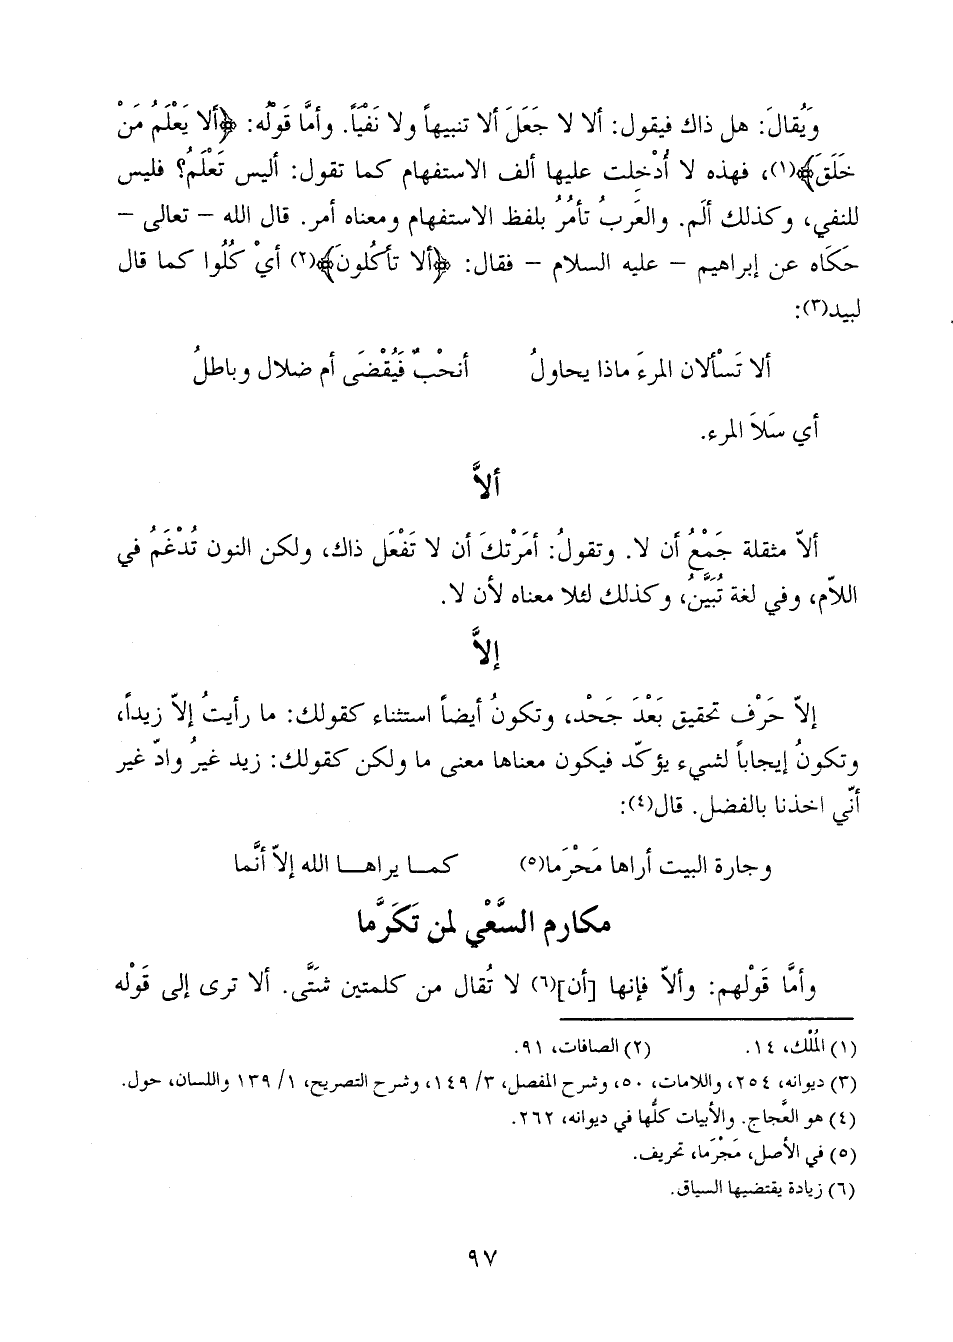 وَيُقالَ: هل ذاك فيقول: ألا لا جَعَلَ ألا تنبيهاً ولا نَفْيَاً. وأمَّا قَوْلُه: ﴿ألا يَعْلَمُ مَنْ
خَلَقَ﴾(١)، فهذه لا أُدْخلت عليها ألف الاستفهام كما تقول: أليس تَعْلَمُ؟ فليس
للنفي، وكذلك ألَم. والعَربُ تأمُرُ بلفظ الاستفهام ومعناه أمر. قال الله – تعالى –
حكَاه عن إبراهيم – عليه السلام – فقال: ﴿ألا تأكُلون﴾(٢) أيْ كُلُوا كما قال
لبيد(٣):
ألا تَسْألان المرءَ ماذا يحاولُ أنحْبٌ فَيُقْضَى أم ضلال وباطلُ
أي سَلاَ المرء.
ألاَّ
ألاّ مثقلة جَمْعُ أن لا. وتقولُ: أمَرْتكَ أن لا تَفْعَل ذاك، ولكن النون تُدْغَمُ في
اللاّم، وفي لغة تُبَيَّنُ، وكذلك لئلا معناه لأن لا.
إلاَّ
إلاّ حَرْف تحقيق بَعْدَ جَحْد، وتكونُ أيضاً استثناء كقولك: ما رأيتُ إلاّ زيداً،
وتكونُ إيجاباً لشيء يؤكّد فيكون معناها معنى ما ولكن كقولك: زيد غيرُ وادّ غير
أنّي اخذنا بالفضل. قال(٤):
وجارة البيت أراها مَحْرَما(٥) كمـا يراهـا الله إلاّ أنَّما
مكارم السَّعْي لمن تَكَرَّما
وأمَّا قَوْلهم: وألاّ فإنها [أن](٦) لا تُقال من كلمتين شتَّى. ألا ترى إلى قَوْله
(١) المُلْك، ١٤. (٢) الصافات، ٩١.
(٣) ديوانه، ٢٥٤، واللامات، ٥٠، وشرح المفصل، ٣/ ١٤٩، وشرح التصريح، ١/ ١٣٩ واللسان، حول.
(٤) هو العَّجاج. والأبيات كلُّها في ديوانه، ٢٦٢.
(٥) في الأصل، مَجْرَما، تحريف.
(٦) زيادة يقتضيها السياق.
٩٧